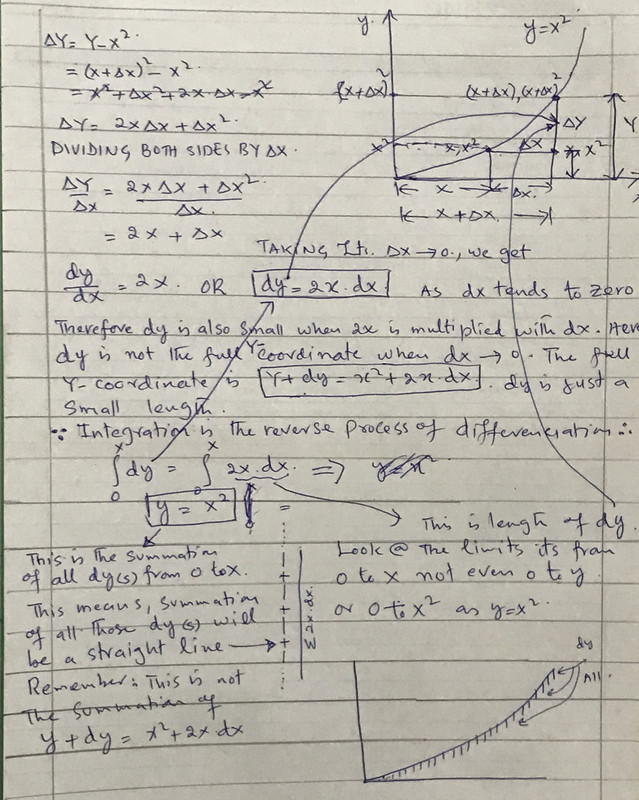 ΔY = Y - x².
= (x+Δx)² - x².
= x² + Δx² + 2x Δx - x²
ΔY = 2xΔx + Δx².
DIVIDING BOTH SIDES BY Δx.
ΔY/Δx = 2xΔx + Δx²/Δx.
= 2x + Δx
y.
y=x²
(x+Δx)²
(x+Δx),(x+Δx)²
ΔY
Y
x²
x,x²
Δx
x²
x
Δx.
x+Δx
TAKING Lti. Δx→0., we get
dy/dx = 2x. OR dy = 2x.dx As dx tends to zero
Therefore dy is also small when 2x is multiplied with dx. Here
dy is not the full Y-coordinate when dx → 0. The full
Y-coordinate is Y+dy = x²+2x.dx. dy is just a
Small length.
∵ Integration is the reverse process of differenciation ∴
x x
∫dy = ∫ 2x.dx. => y=x²
0 0
y = x²
This is length of dy.
Look @ The limits its from
0 to x not even 0 to y
or 0 to x² as y=x².
This is the summation
of all dy(s) from 0 to x.
This means, summation
of all those dy(s) will
be a straight line
Σ 2x.dx.
Remember: This is not
The Summation of
y + dy = x²+2x.dx
dy
All